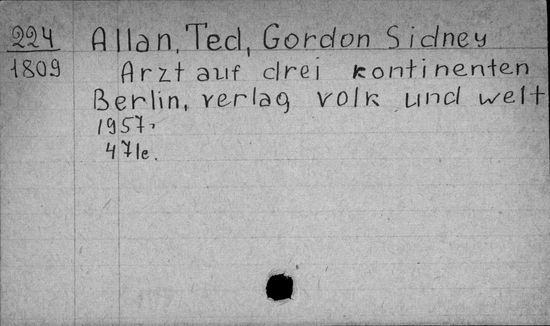 224 Allan, Ted, Gordon Sidney
1809 Arzt auf drei kontinenten
Berlin, verlag volk und welt
1957.
471e.